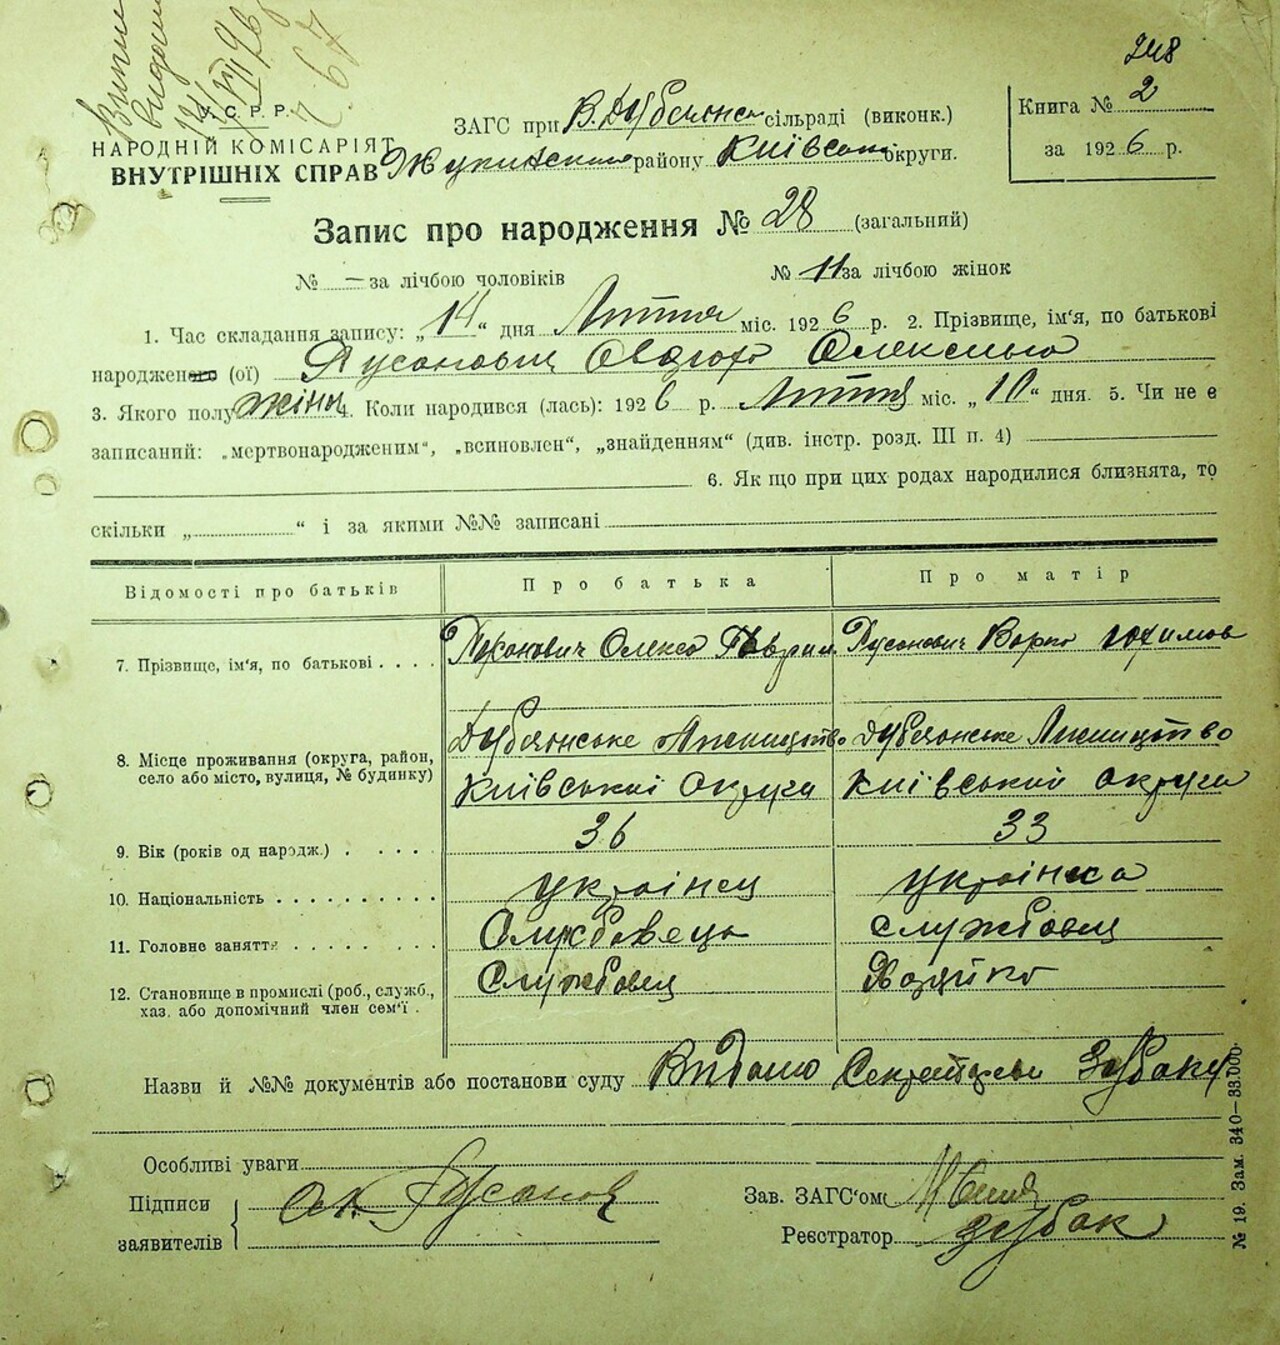 248
У. С. Р. Р.
НАРОДНІЙ КОМІСАРІЯТ
ВНУТРІШНІХ СПРАВ
ЗАГС при В. Дубечанс сільраді (виконк.)
району Київської округи.
Книга № 2
за 1926 р.
Запис про народження № 28 (загальний)
№ — за лічбою чоловіків № 11 за лічбою жінок
1. Час складання запису: „14“ дня Липня міс. 1926 р. 2. Прізвище, ім'я, по батькові
народженого (ої) Русанович Олексієва
3. Якого полу жіноч 4. Коли народився (лась): 1926 р. Липня міс. „10“ дня. 5. Чи не є
записаний: „мертвонародженим“, „всиновлен“, „знайденням“ (див. інстр. розд. III п. 4)
6. Як що при цих родах народилися близнята, то
скільки „ “ і за якими №№ записані
Відомості про батьків Про батька Про матір
7. Прізвище, ім'я, по батькові . . . . Русанович Олекса Гаврил. Русанович Варка Юхимов
8. Місце проживання (округа, район, село або місто, вулиця, № будинку) Дубечанське Лісництво Дубечанське Лісництво
Київської Округи Київської округи
9. Вік (років од народж.) . . . . 36 33
10. Національність . . . . . . . . . . українец українка
11. Головне заняття . . . . . . . Службовець службовец
12. Становище в промислі (роб., служб., хаз. або допомічний член сем'ї . Службовец Хазяйка
Назви й №№ документів або постанови суду Видано Секретарем Зубаку
Особливі уваги
Підписи
заявителів
Ал. Русанов
Зав. ЗАГС'ом
Реєстратор Зубак
№ 19. Зам. 340—33.000.